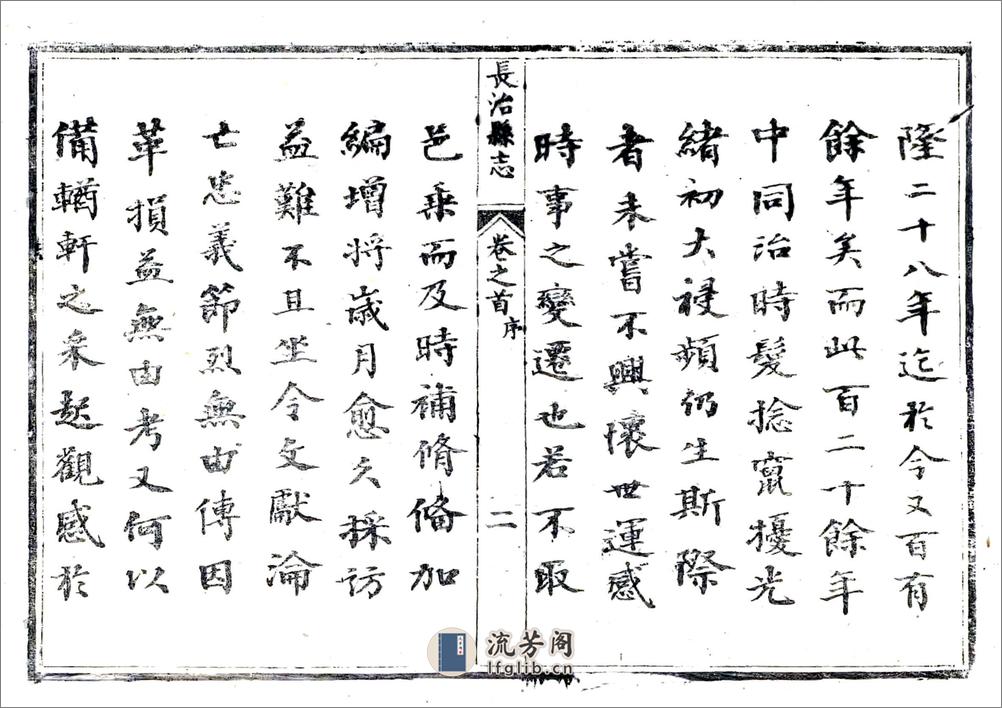 隆二十八年迄於今又百有
餘年矣而此百二十餘年
中同治時髮捻竄擾光
緒初大祲頻仍生斯際
者未嘗不興懷世運感
時事之變遷也若不取
長治縣志
卷之首 序
二
邑乘而及時補脩備加
編增將歲月愈久採訪
益難不且坐令文獻淪
亡忠義節烈無由傳因
革損益無由考又何以
備輶軒之采起觀感於
流芳阁
lfglib.cn